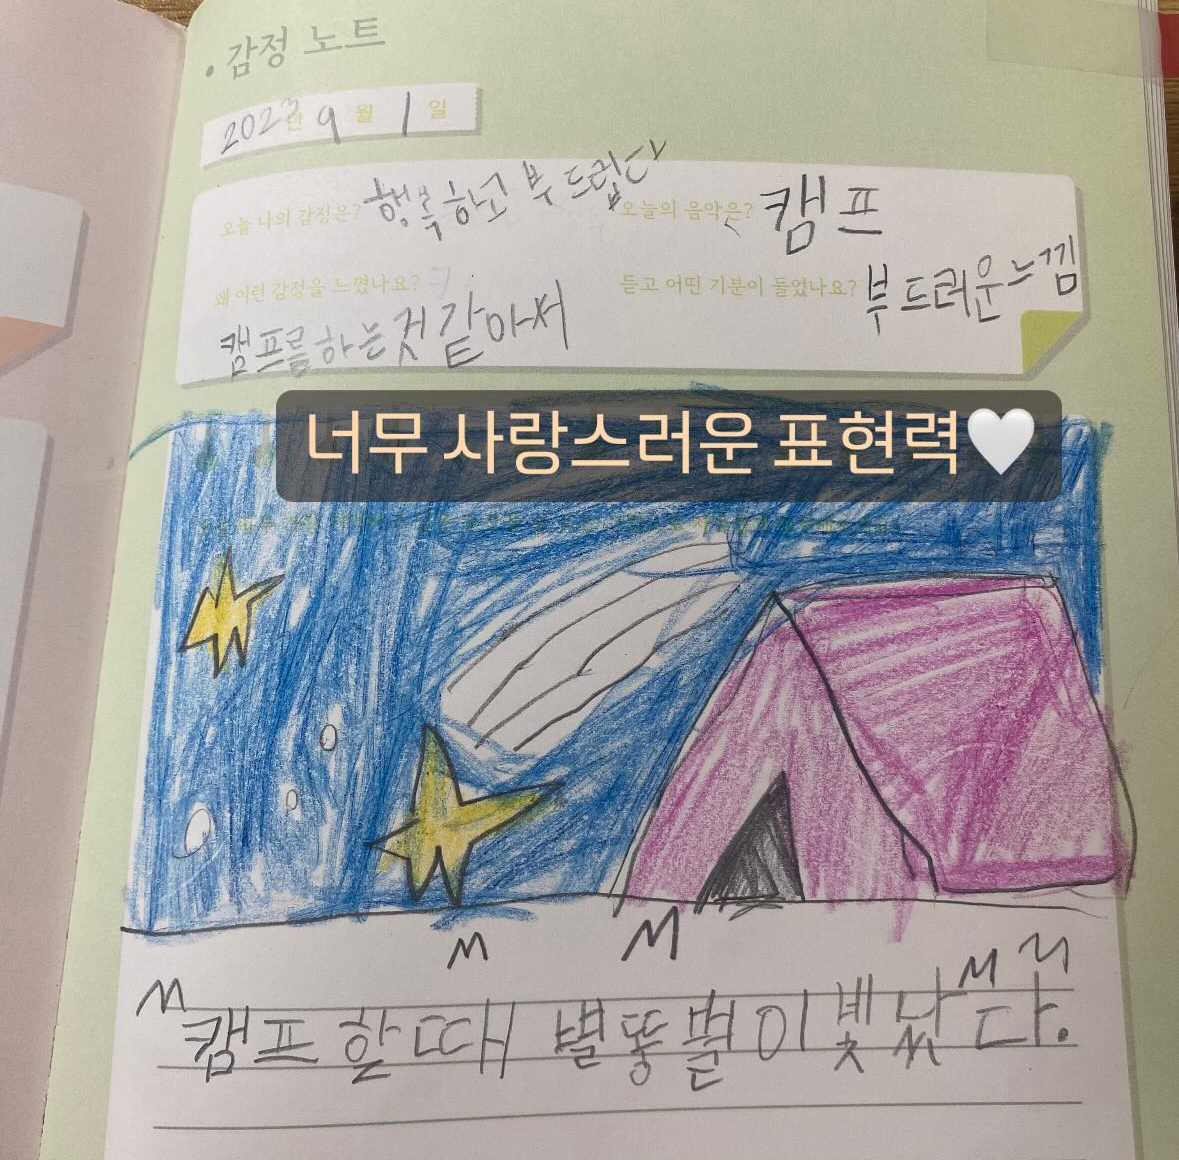 • 감정 노트
2023년 9월 1일
오늘 나의 감정은? 행복하고 부드럽다
오늘의 음악은? 캠프
왜 이런 감정을 느꼈나요?
캠프를하는것같아서
듣고 어떤 기분이 들었나요? 부드러운느낌
너무 사랑스러운 표현력🤍
캠프할때 별똥별이빛났다.